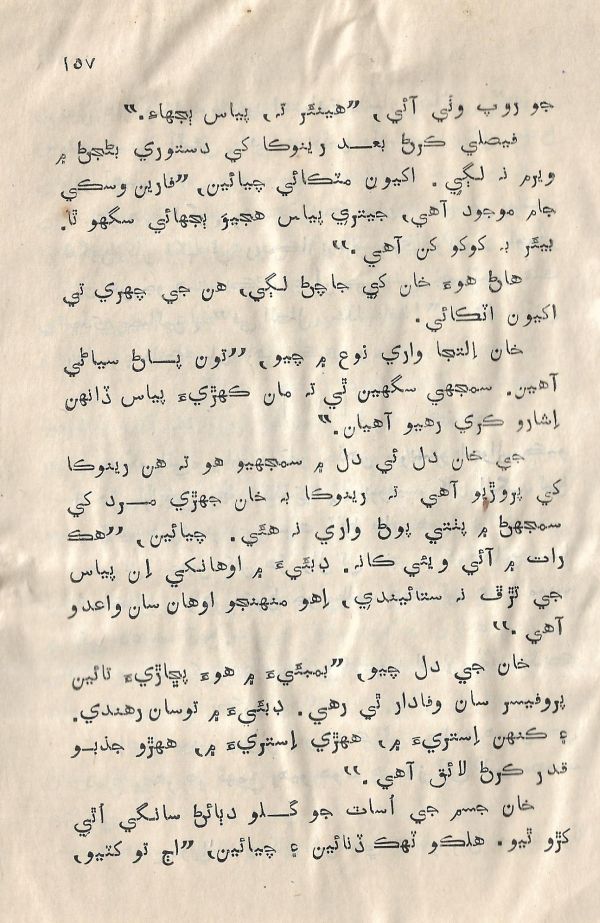 ١٥٧
جو روپ وٺي آئي، ”هينئر تہ، پياس ٻجهاء.“
فيصلي ڪرڻ بعد رينوڪا کي دستوري بڻجڻ ۾
ويرم نہ لڳي. اکيون مٽڪائي چيائين، ”فارين وسڪي
جام موجود آهي، جيتري پياس هجيوَ ٻجهائي سگهو ٿا.
بيئر بہ ڪوڪو ڪن آهي.“
هاڻ هوءَ خان کي جاچڻ لڳي، هن جي چهري تي
اکيون اٽڪائي.
خان اِلتجا واري نوع ۾ چيو، ”تون پساڻ سياڻي
آهين. سمجهي سگهين ٿي تہ مان ڪهڙيءَ پياس ڏانهن
اِشارو ڪري رهيو آهيان.“
جي خان دل ئي دل ۾ سمجهيو هو تہ هن رينوڪا
کي پروڙيو آهي تہ رينوڪا بہ خان جهڙي مرد کي
سمجهڻ ۾ پٺتي پوڻ واري نہ هئي. چيائين، ”هڪ
رات ۾ آئي ويئي ڪانہ. ڊبئيءَ ۾ اوهانکي اِن پياس
جي تڙڦ نہ ستائيندي، اِهو منهنجو اوهان سان واعدو
آهي.“
خان جي دل چيو، ”بمبئيءَ ۾ هوءَ پڇاڙيءَ تائين
پروفيسر سان وفادار ٿي رهي. ڊبئيءَ ۾ توسان رهندي.
۽ ڪنهن اِستريءَ ۾، ههڙي اِستريءَ ۾، ههڙو جذبو
قدر ڪرڻ لائق آهي.“
خان جسم جي اُسات جو گلو دٻائڻ سانگي اُٿي
کڙو ٿيو. هلڪو ٽهڪ ڏنائين ۽ چيائين، ”اڄ تو کٽيو،